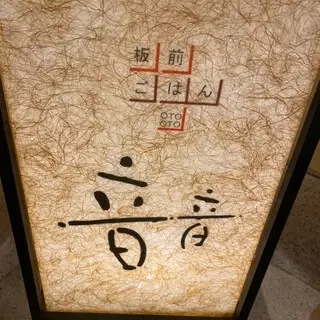 板前
ごはん
OTO
OTO
音音